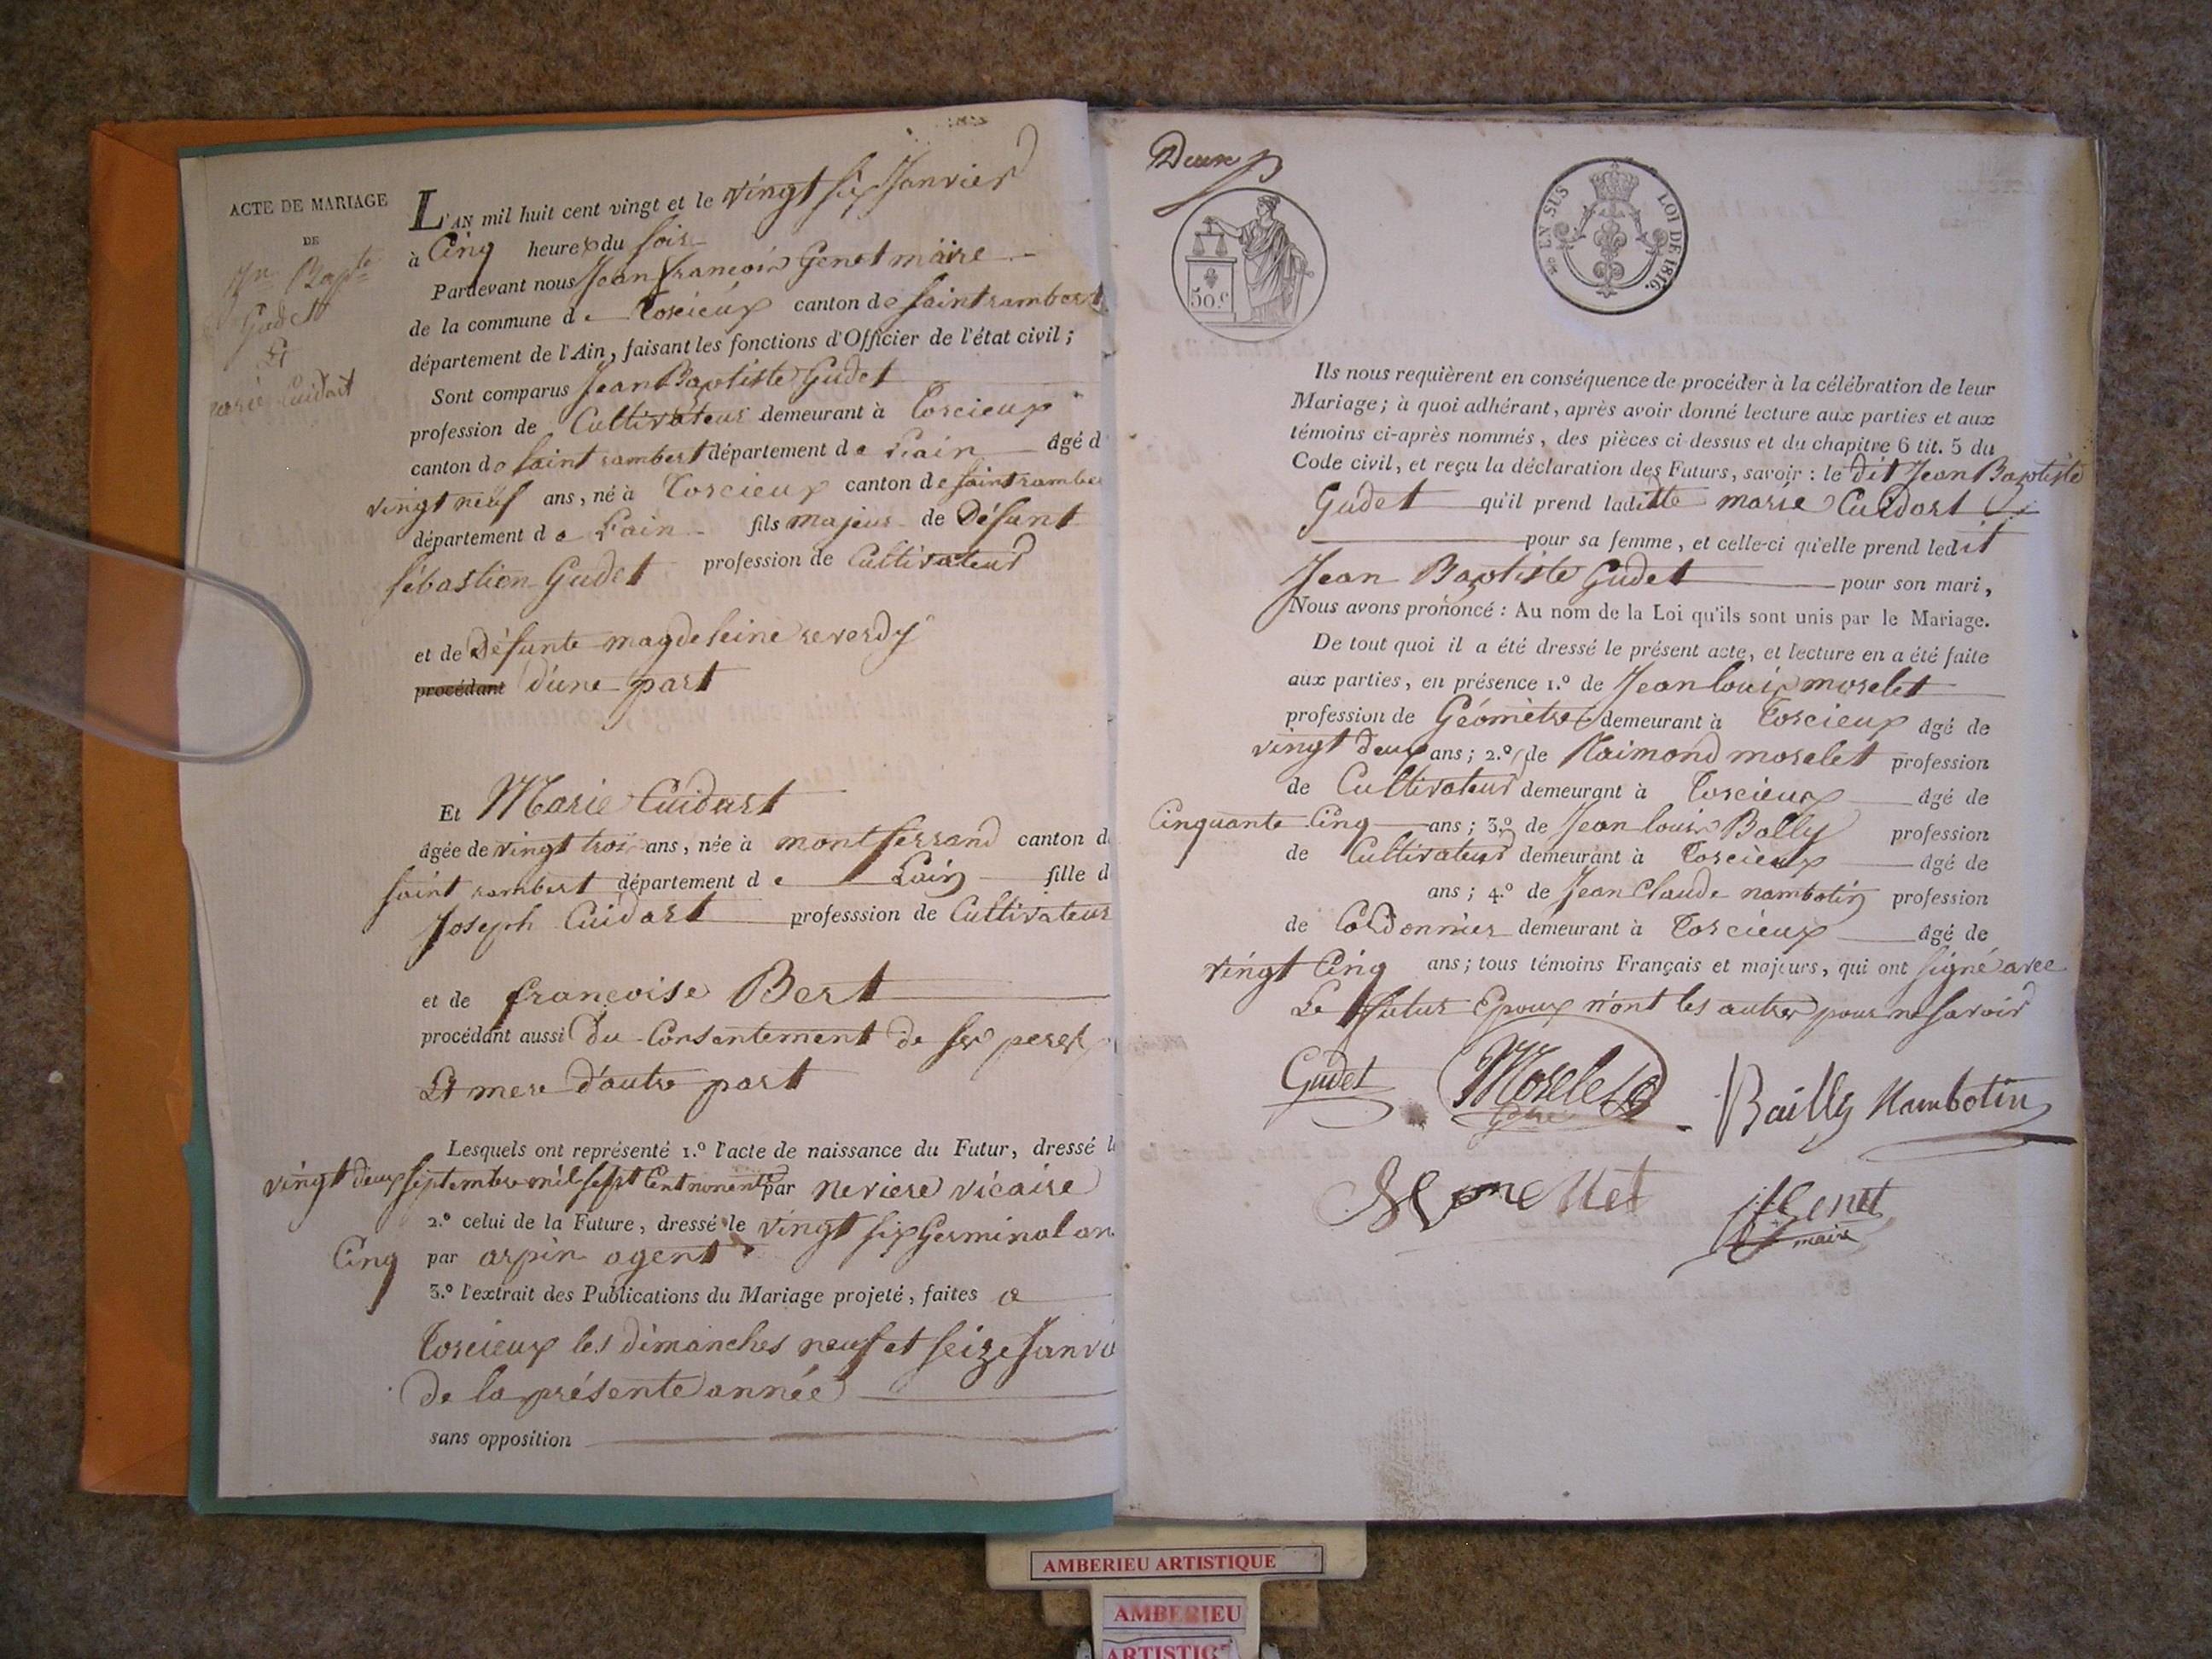 ACTE DE MARIAGE
DE
Jn Bapte
Gudet
Et
marie Cuidart
L'AN mil huit cent vingt et le vingt six Janvier
à Cinq heures du soir
Pardevant nous Jean françois Genet maire
de la commune de Torcieux canton de saint rambert
département de l'Ain, faisant les fonctions d'Officier de l'état civil;
Sont comparus Jean Baptiste Gudet
profession de Cultivateur demeurant à Torcieux
canton de saint rambert département de L'ain âgé d
vingt neuf ans, né à Torcieux canton de saint rambe
département de L'ain fils majeur de Défunt
sébastien Gudet profession de Cultivateur
et de Défunte magdeleine reverdy
procédant d'une part
Et Marie Cuidart
âgée de vingt trois ans, née à montferrand canton d
saint rambert département de Lain fille d
Joseph Cuidart professsion de Cultivateur
et de françoise Bert
procédant aussi du Consentement de ses peres
Et mere d'autre part
Lesquels ont représenté 1.º l'acte de naissance du Futur, dressé l
vingt deux septembre mil sept Cent nonente par neviere vicaire
2.º celui de la Future, dressé le vingt six Germinal an
Cinq par arpin agent
3.º l'extrait des Publications du Mariage projeté, faites a
Torcieux les dimanches neuf et seize Janvi
de la présente année
sans opposition
Deux
50.c
EN SUS
LOI DE 1816.
Ils nous requièrent en conséquence de procéder à la célébration de leur
Mariage; à quoi adhérant, après avoir donné lecture aux parties et aux
témoins ci-après nommés, des pièces ci-dessus et du chapitre 6 tit. 5 du
Code civil, et reçu la déclaration des Futurs, savoir: le dit Jean Baptiste
Gudet qu'il prend laditte marie Cuidart
pour sa femme, et celle-ci qu'elle prend ledit
Jean Baptiste Gudet pour son mari,
Nous avons prononcé: Au nom de la Loi qu'ils sont unis par le Mariage.
De tout quoi il a été dressé le présent acte, et lecture en a été faite
aux parties, en présence 1.º de Jean louis morelet
profession de Géomètre demeurant à Torcieux âgé de
vingt deux ans; 2.º de Raimond morelet profession
de Cultivateur demeurant à Torcieux âgé de
Cinquante Cinq ans; 3.º de Jean louis Bally profession
de Cultivateur demeurant à Torcieux âgé de
ans; 4.º de Jean Claude nambotin profession
de Cordonnier demeurant à Torcieux âgé de
vingt Cinq ans; tous témoins Français et majeurs, qui ont signé avec
Le futur Epoux n'ont les autres pour ne savoir
Gudet Morelet Bailly Nambotin
Genet
maire
AMBERIEU ARTISTIQUE
AMBERIEU
ARTISTIC